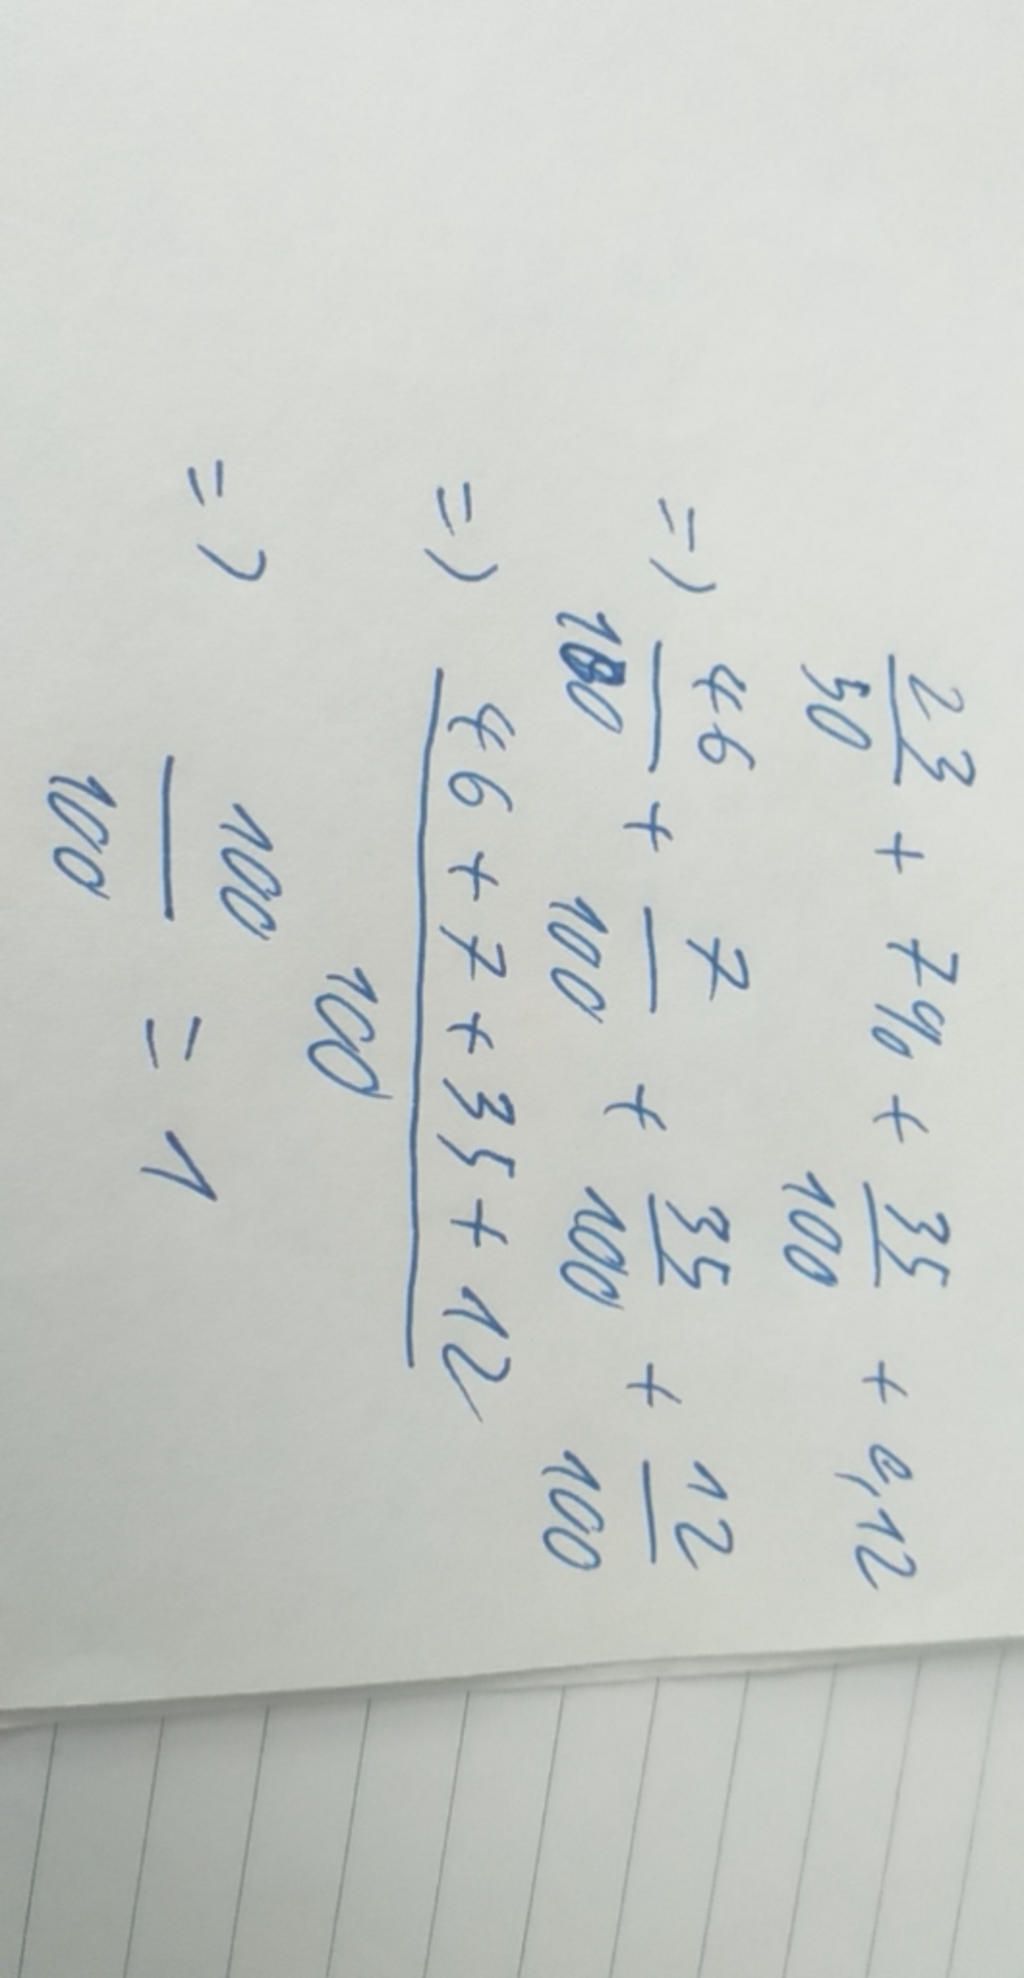 23/50 + 7% + 35/100 + 0,12
=> 46/100 + 7/100 + 35/100 + 12/100
=> (46 + 7 + 35 + 12)/100
=> 100/100 = 1